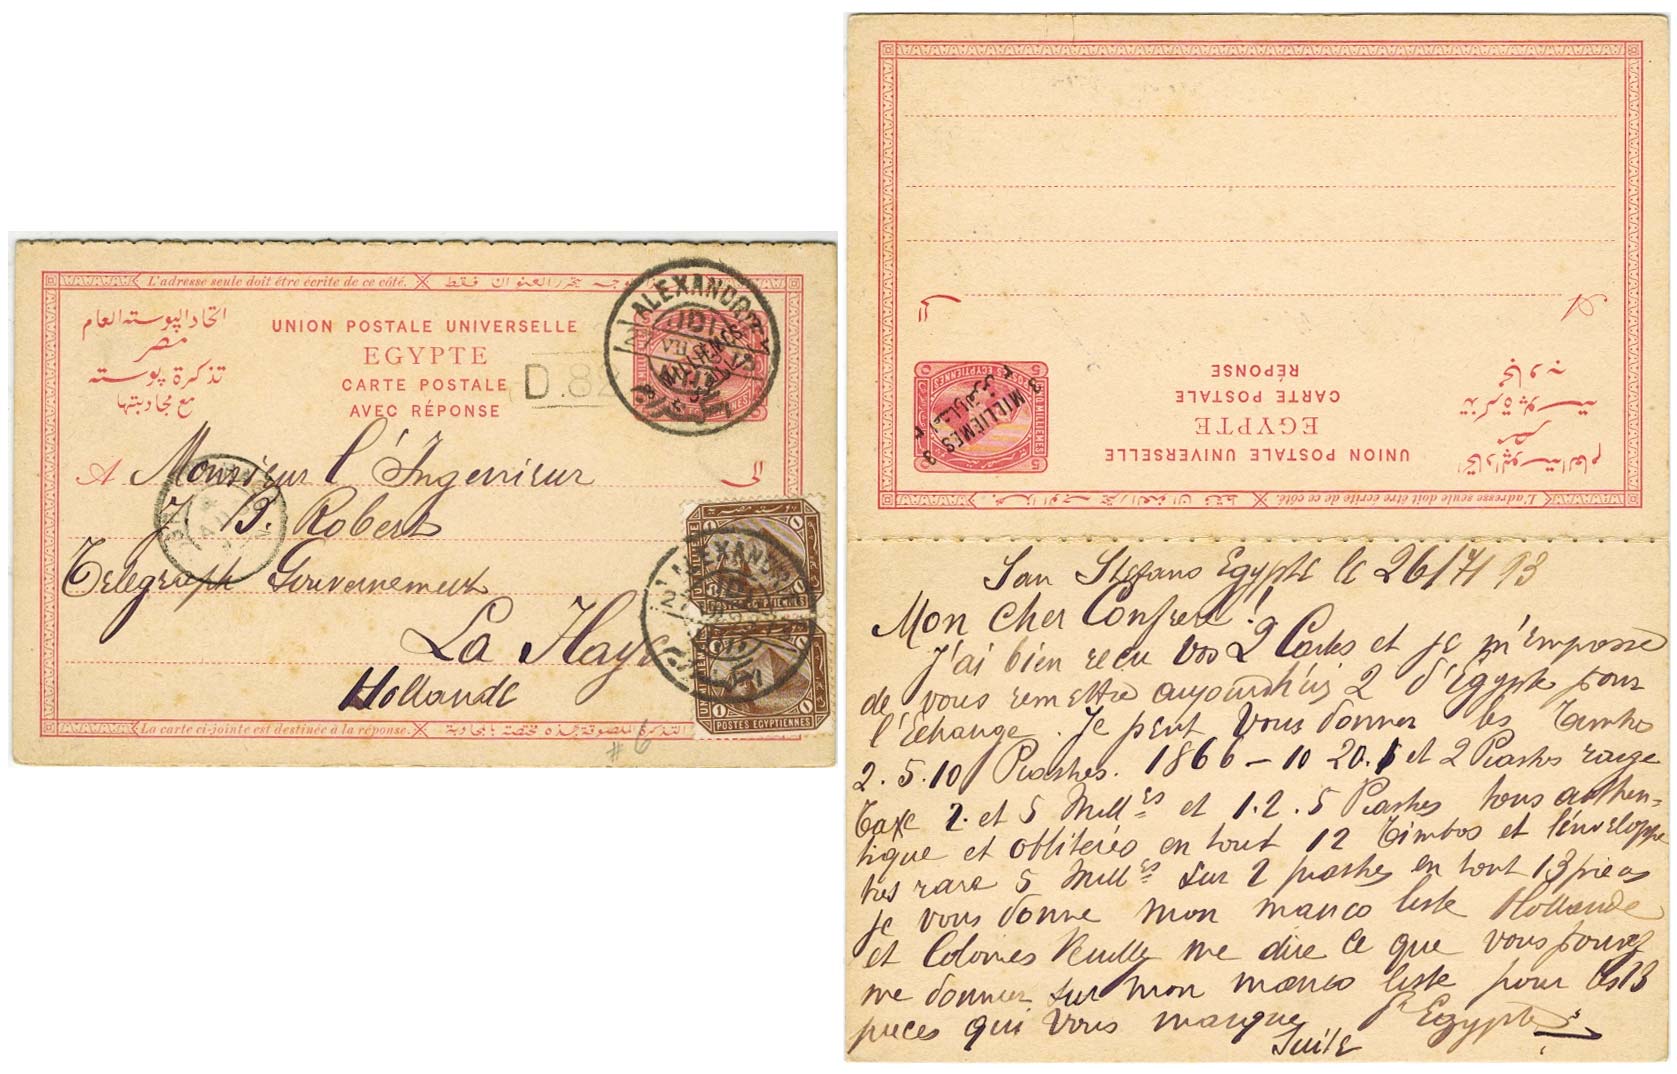 L'adresse seule doit être écrite de ce côté.
UNION POSTALE UNIVERSELLE
EGYPTE
CARTE POSTALE
AVEC RÉPONSE
اتحاد البوسته العام
مصر
تذكرة بوسته
مع مجاوبتها
D.82
ALEXANDRIE
3 MILLIEMES
A Monsieur l'Ingenieur
J. B. Robert
Telegraph Gouvernement
La Haye
Hollande
UN MILLIEME
POSTES EGYPTIENNES
La carte ci-jointe est destinée à la réponse.
#6
L'adresse seule doit être écrite de ce côté.
UNION POSTALE UNIVERSELLE
EGYPTE
CARTE POSTALE
RÉPONSE
3 MILLIEMES 3
A
San Stefano Egypte le 26/7/93
Mon cher Confrere!
J'ai bien recu vos 2 Cartes et je m'empresse
de vous remettre aujourdh'ui 2 d'Egypte pour
l'Echange. Je peut Vous donner les Timbres
2. 5. 10 Piastres. 1866 – 10 20. et 2 Piastres rouge
Taxe 2. et 5 Mill.es et 1. 2. 5 Piastres tous authen=
tique et oblitérés en tout 12 Timbres et l'énveloppe
tres rare 5 Mill.es sur 2 piastres en tout 13 pieces
je vous donne mon manco liste Hollande
et Colonies Veuillez me dire ce que vous pouvez
me donner sur mon manco liste pour les 13
pieces qui Vous manque Egypte
Suite